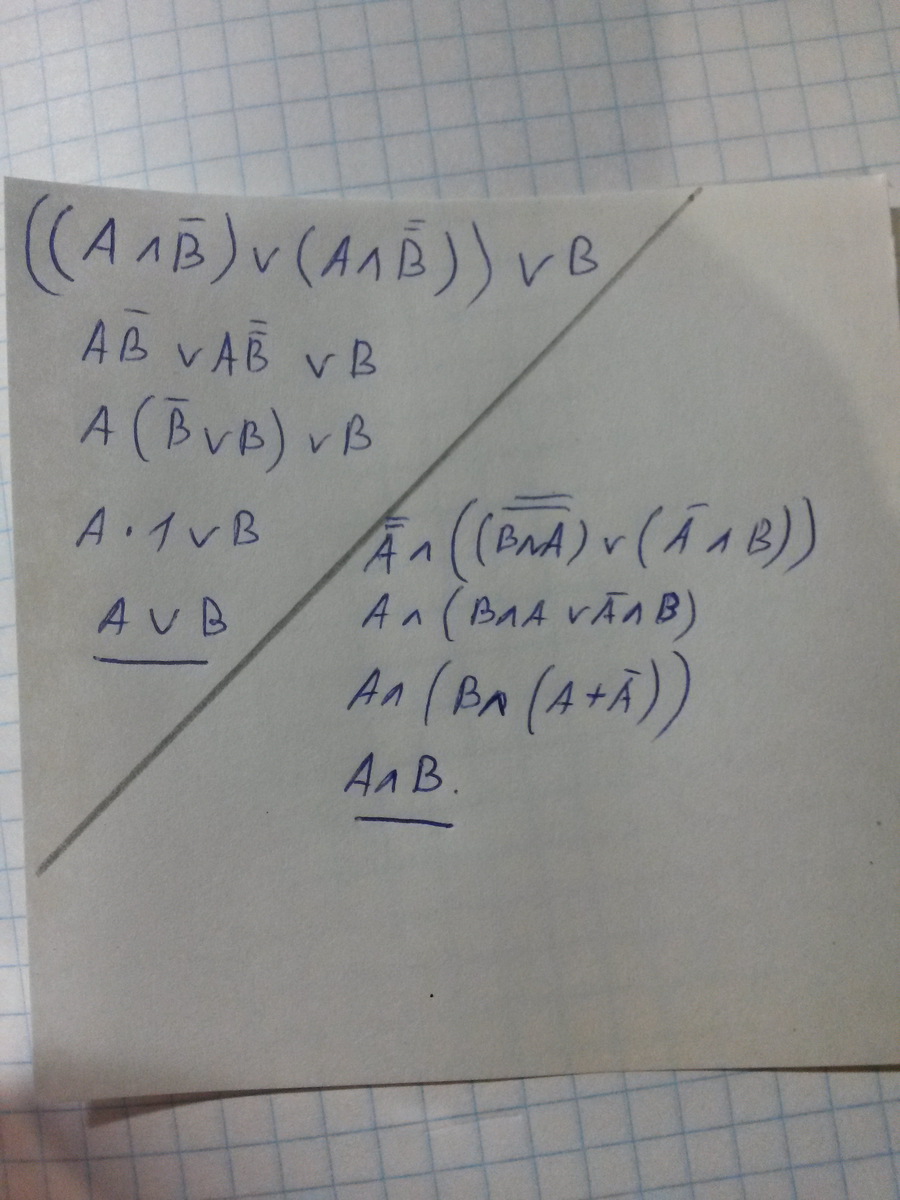 ((A ∧ B̅) ∨ (A ∧ B̿)) ∨ B
AB̅ ∨ AB̿ ∨ B
A (B̅ ∨ B) ∨ B
A · 1 ∨ B
A ∨ B
A̿ ∧ ((B̿∧̿A̿) ∨ (A̅ ∧ B))
A ∧ (B∧A ∨ A̅ ∧ B)
A∧ (B∧ (A + A̅))
A∧B.